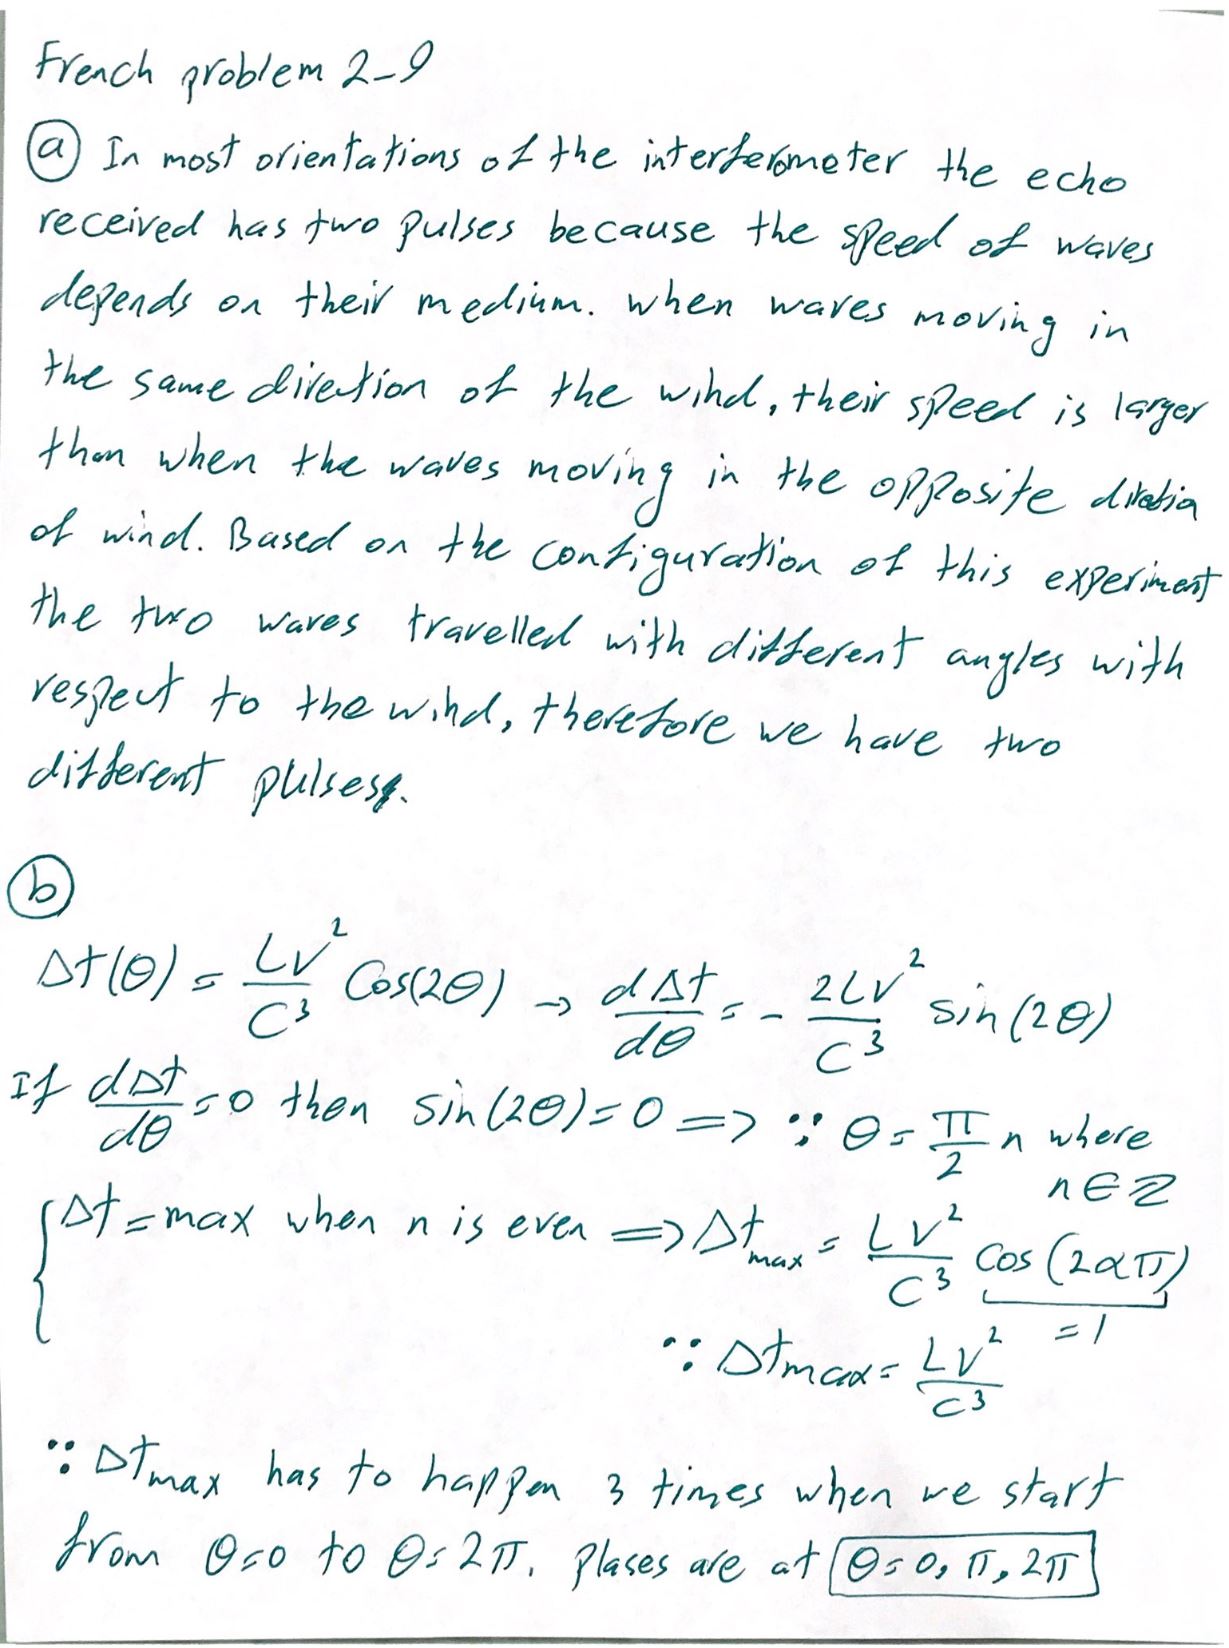 French problem 2-9
(a) In most orientations of the interferometer the echo
received has two pulses because the speed of waves
depends on their medium. when waves moving in
the same direction of the wind, their speed is larger
than when the waves moving in the opposite diretion
of wind. Based on the configuration of this experiment
the two waves travelled with different angles with
respect to the wind, therefore we have two
different pulses.
(b)
Δt(θ) = Lv²/C³ Cos(2θ) → dΔt/dθ = - 2Lv²/C³ sin(2θ)
If dΔt/dθ = 0 then sin(2θ)=0 => ∵ θ = π/2 n where n∈ℤ
{ Δt = max when n is even => Δt_max = Lv²/C³ cos(2απ)
= 1
∵ Δt_max = Lv²/C³
∵ Δt_max has to happen 3 times when we start
from θ=0 to θ=2π. plases are at θ=0, π, 2π